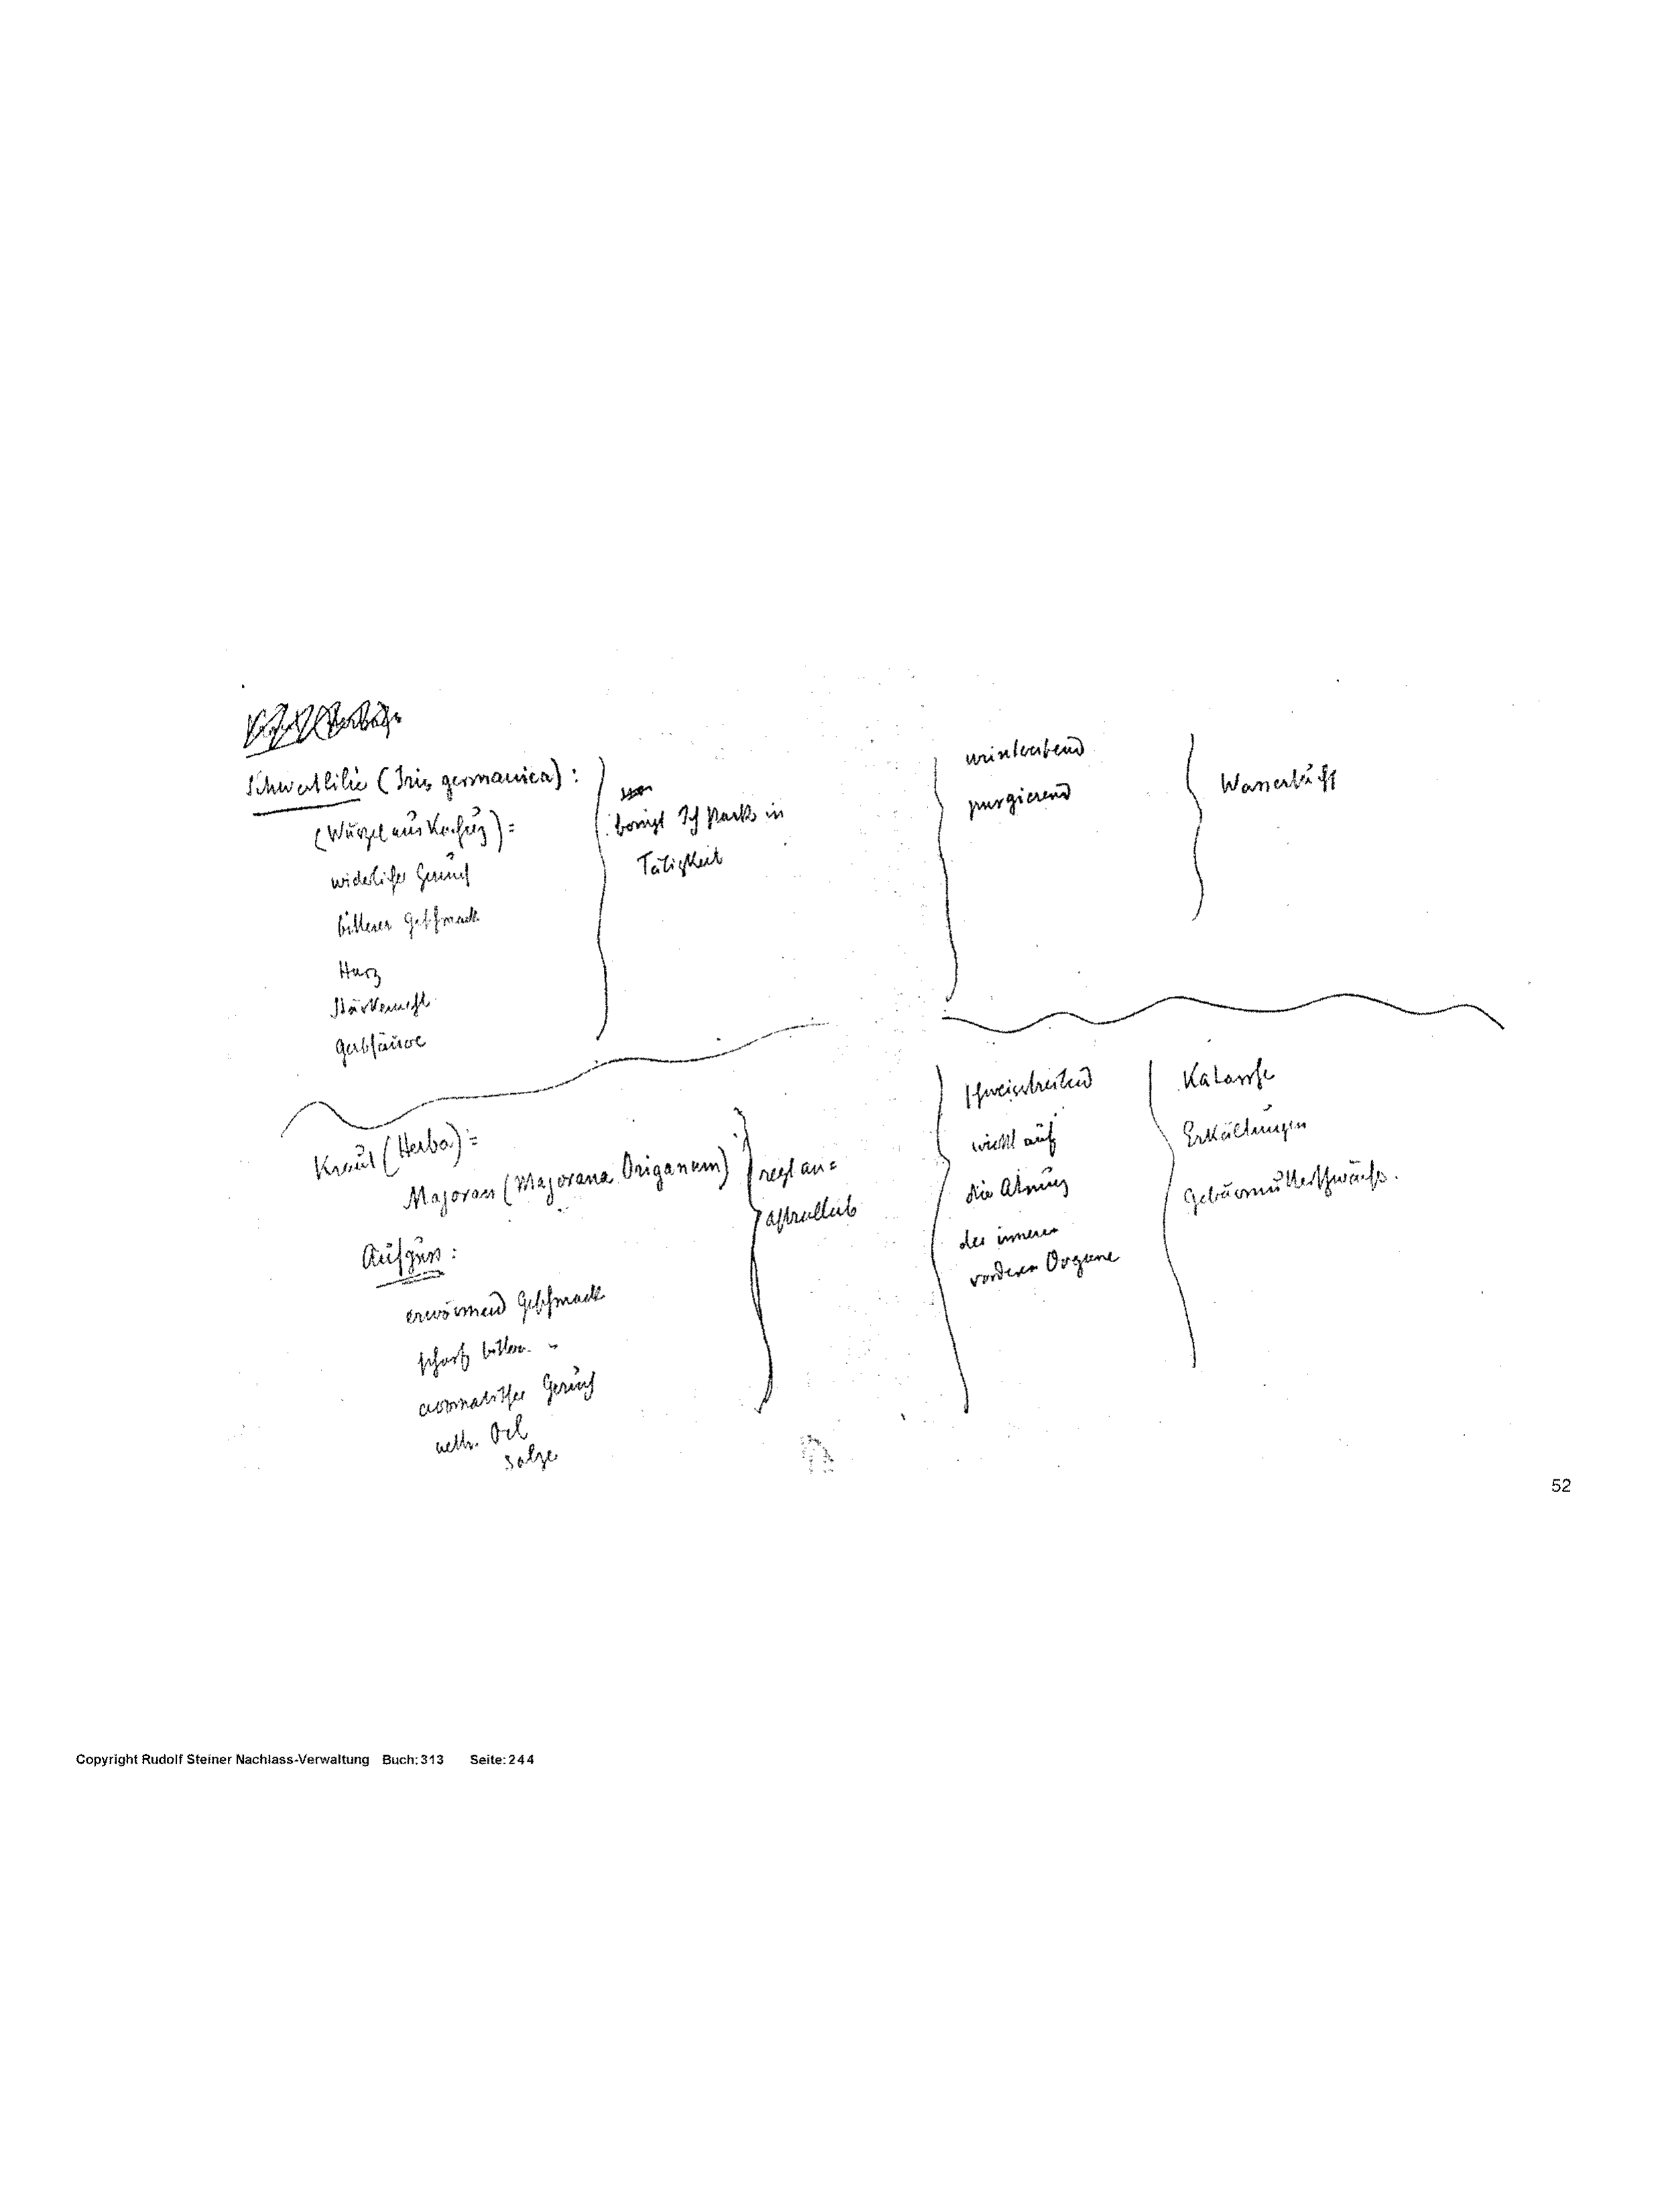 Schwertlilie (Iris germanica):
(Wurzel aus Kochung) =
widerlicher Geruch
bitterer Geschmack
Harz
Stärkemehl
Gerbsäure
bringt Ich stark in
Tätigkeit
urintreibend
purgierend
Wassersucht
Kraut (Herba) =
Majoran (Majorana Origanum)
Aufguss:
erwärmend Geschmack
scharf bitter "
aromatischer Geruch
aeth. Oel
Salze
regt an =
Astralleib
schweisstreibend
wirkt auf
die Atmung
der inneren
vorderen Organe
Katarrhe
Erkältungen
Gebärmutterschwäche.
52
Copyright Rudolf Steiner Nachlass-Verwaltung Buch:313 Seite:244